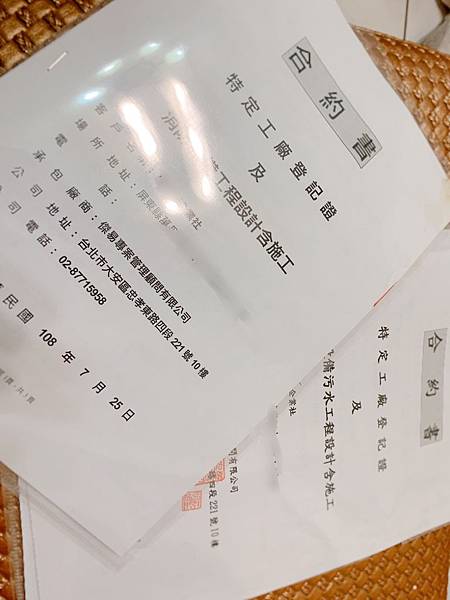 合約書
特定工廠登記證
及
工程設計含施工
客戶名稱:
企業社
場所地址:屏東縣
電話:
承包廠商:傑易專案管理顧問有限公司
公司地址:台北市大安區忠孝東路四段221號10樓
公司電話:02-87715958
民國 108 年 7 月 25 日
合約書
特定工廠登記證
及
備污水工程設計含施工
企業社
有限公司
四段221號10樓